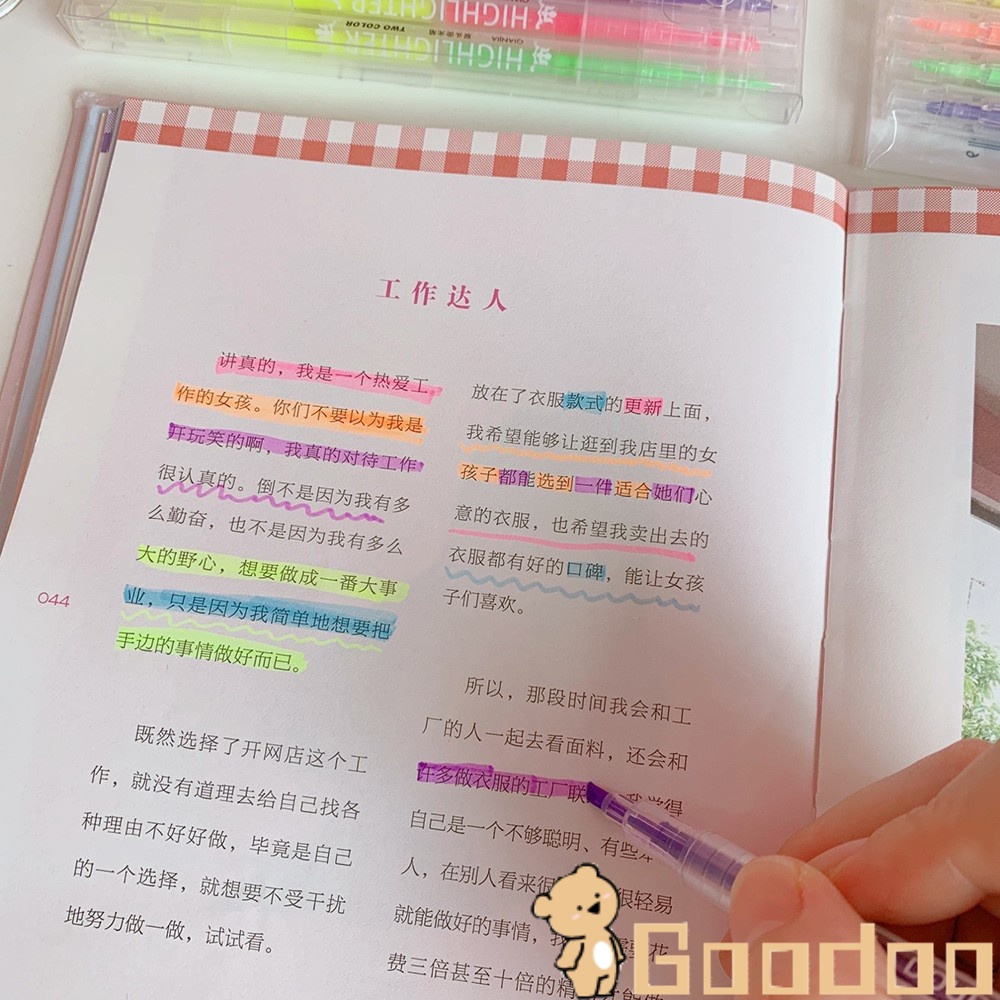 HIGHLIGHTER
QIANJIA
HIGHLIGHTER
TWO COLOR
QIANJIA
工作达人
讲真的，我是一个热爱工
作的女孩。你们不要以为我是
开玩笑的啊，我真的对待工作
很认真的。倒不是因为我有多
么勤奋，也不是因为我有多么
大的野心，想要做成一番大事
业，只是因为我简单地想要把
手边的事情做好而已。
044
既然选择了开网店这个工
作，就没有道理去给自己找各
种理由不好好做，毕竟是自己
的一个选择，就想要不受干扰
地努力做一做，试试看。
放在了衣服款式的更新上面，
我希望能够让逛到我店里的女
孩子都能选到一件适合她们心
意的衣服，也希望我卖出去的
衣服都有好的口碑，能让女孩
子们喜欢。
所以，那段时间我会和工
厂的人一起去看面料，还会和
许多做衣服的工厂联 我觉得
自己是一个不够聪明、有些
人，在别人看来很 很轻易
就能做好的事情，我 花
费三倍甚至十倍的精
Goodoo